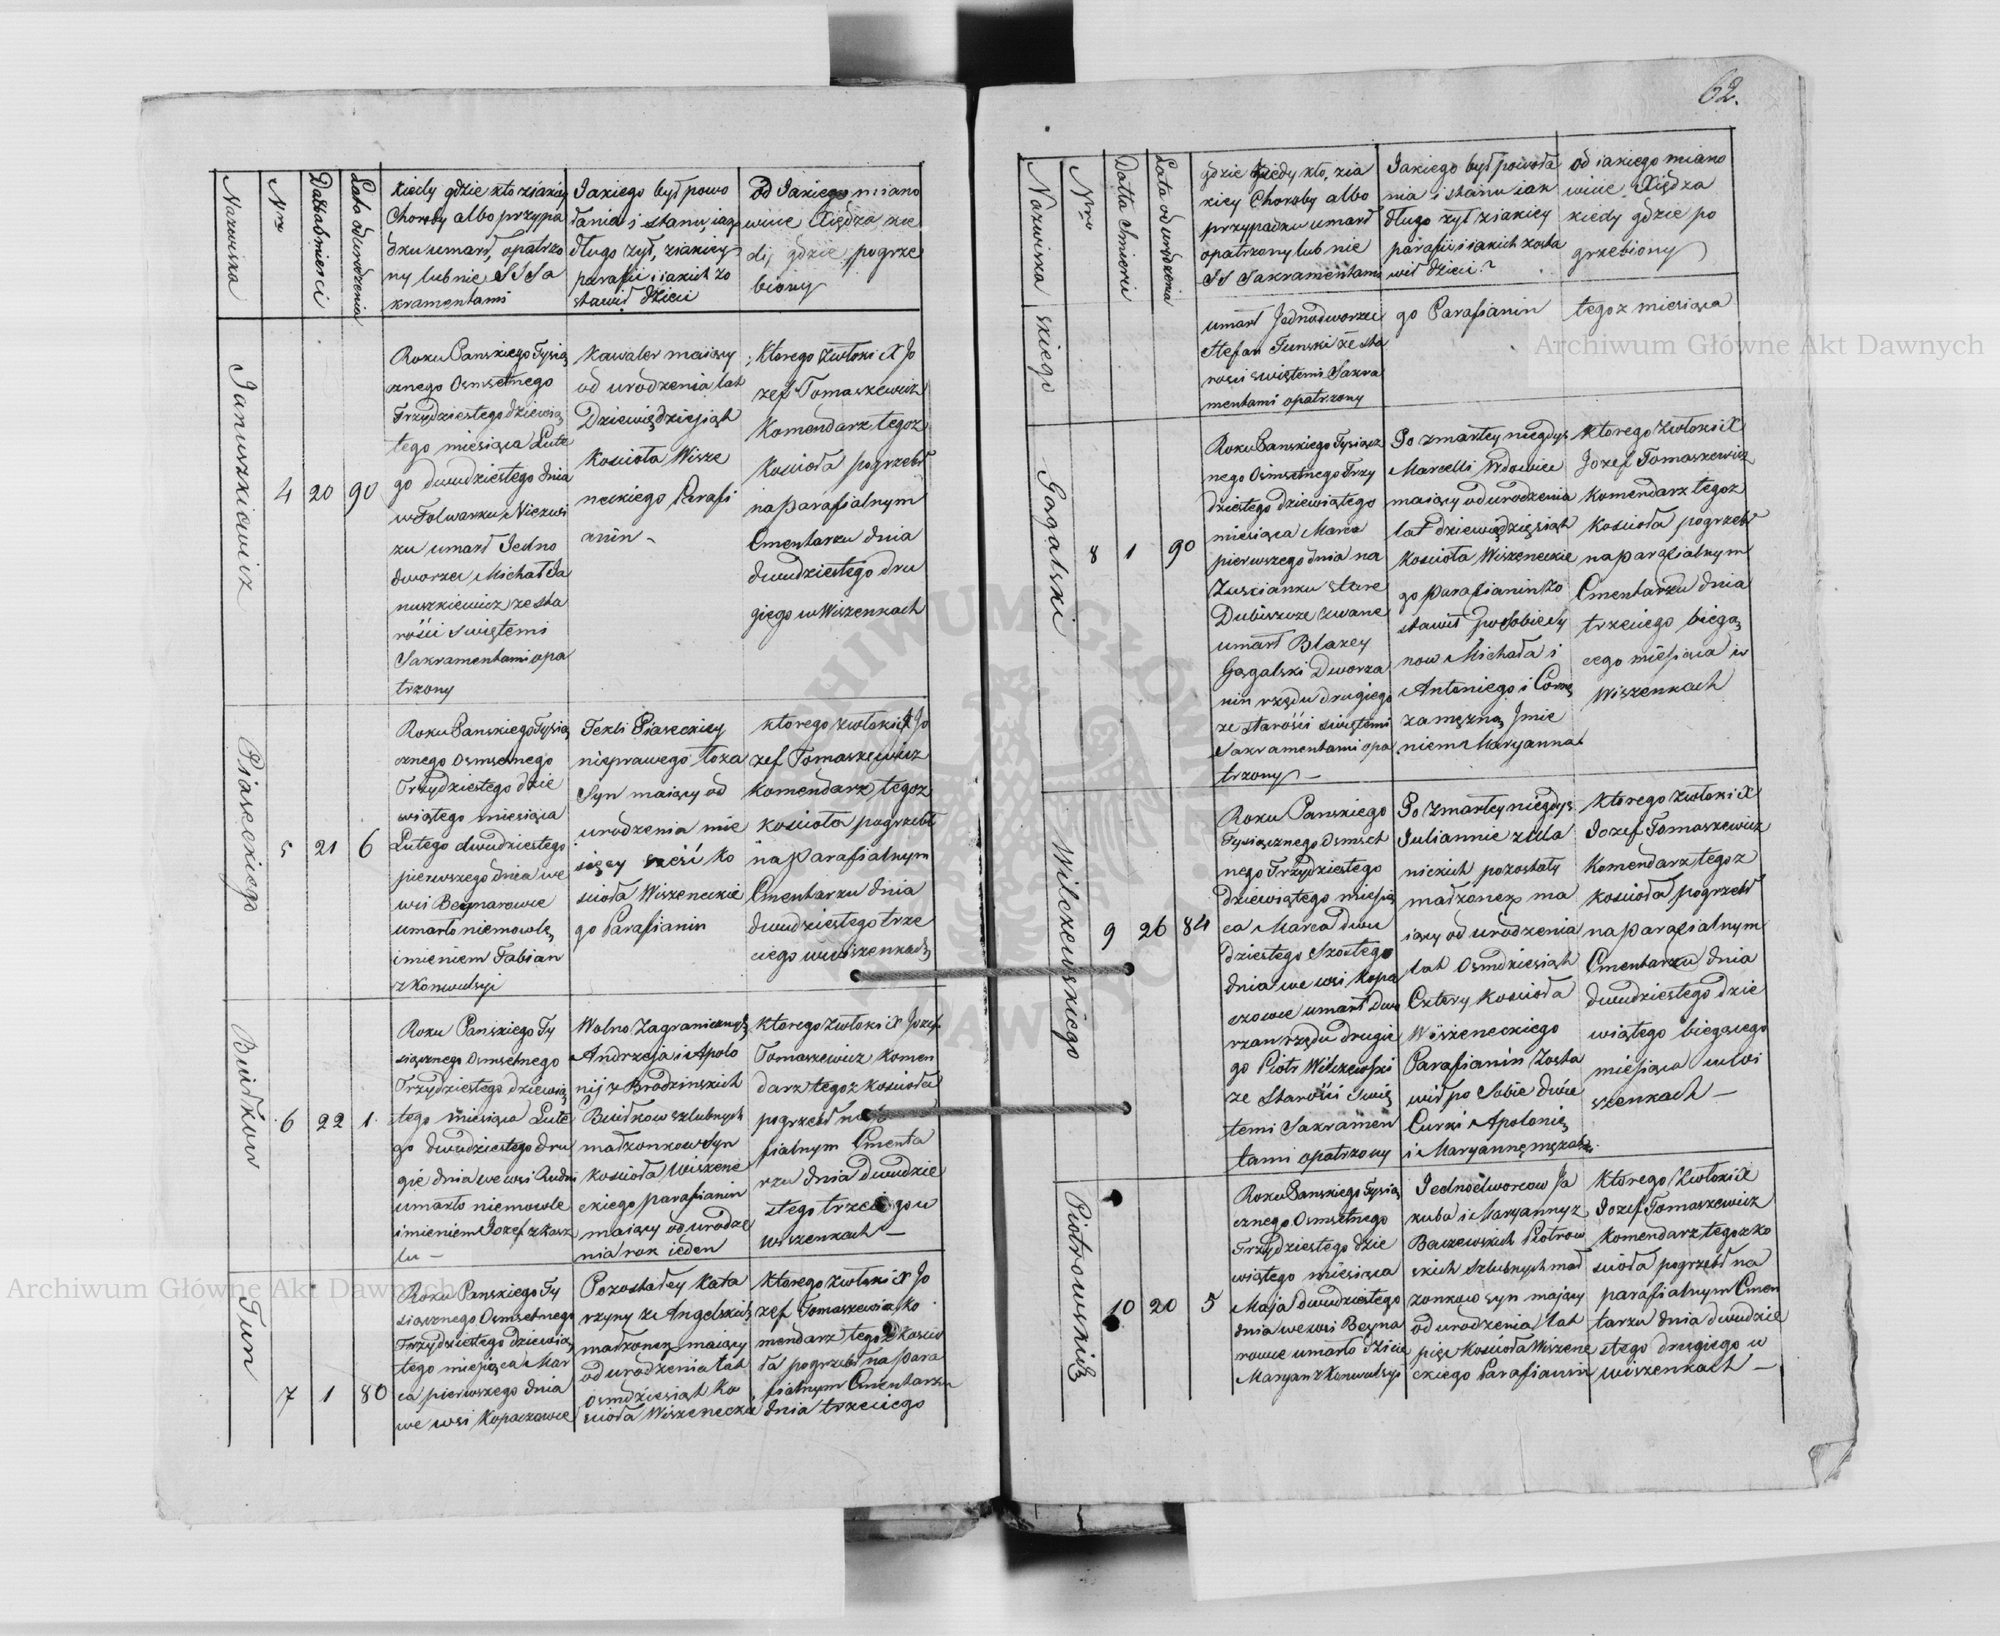 62.
Nazwiska
Nro
Data śmierci
Lata od urodzenia
Kiedy gdzie kto z iakiey
Choroby albo przypa
dku umarł, opatrzo
ny lub nie SS Sa
kramentami
Iakiego był powo
łania i stanu, iak
długo żył, z iakiey
parafii i iakich zo
stawił dzieci
od Iakiego miano
wicie Xiędza, kie
dy gdzie, pogrze
biony
Januszkiewicz
4
20
90
Roku Panskiego Tysią
cznego Osmsetnego
Trzydziestego dziewią
tego miesiąca Lute
go dwudziestego dnia
w Folwarku Niezwi
zu umarł Iedno
dworzec Michał Ja
nuszkiewicz ze sta
rości Swiętemi
Sakramentami opa
trzony
Kawaler maiący
od urodzenia lat
Dziewiędziesiąt
Koscioła Wisze
neckiego Parafi
anin -
Ktorego Zwłoki X Jo
zef Tomaszewicz
Komendarz tegoz
Koscioła pogrzebł
na parafialnym
Cmentarzu dnia
dwudziestego dru
giego w Wiszenkach
Piaseckiego
5
21
6
Roku Panskiego Tysią
cznego Osmsetnego
Trzydziestego dzie
wiątego miesiąca
Lutego dwudziestego
pierwszego dnia we
wsi Beynarowie
umarło niemowlę
imieniem Fabian
z Konwulsyi
Tekli Piaseckiey
nieprawego łoza
Syn maiący od
urodzenia mie
sięcy sześć Ko
scioła Wiszeneckie
go Parafianin
ktorego zwłoki X Jo
zef Tomaszewicz
Komendarz tegoz
koscioła pogrzebł
na parafialnym
Cmentarzu dnia
dwudziestego trze
ciego w Wiszenkach
Budkow
6
22
1
Roku Panskiego Ty
siącznego Osmsetnego
Trzydziestego dziewią
tego miesiąca Lute
go dwudziestego dru
gie dnia we wsi Rudni
umarło niemowle
imieniem Jozef z Kasz
lu -
Wolno Zagranicznych
Andrzeja i Apolo
nij z Brodzinskich
Budkow szlubnych
małzonkow Syn
Koscioła Wiszene
ckiego parafianin
maiący od urodze
nia rok ieden
Ktorego Zwłoki X Jozef
Tomaszewicz Komen
darz tegoz koscioła
pogrzebł na
fialnym Cmenta
rzu dnia dwudzie
stego trzeciego w
Wiszenkach -
Tun
7
1
80
Roku Panskiego Ty
siącznego Osmsetnego
Trzydziestego dziewią
tego miesiąca Mar
ca pierwszego dnia
we wsi Kopaczowie
Pozostałey Kata
rzyny z Angelskich
małzonek maiący
od urodzenia lat
osmdziesiąt Ko
scioła Wiszenecka
Ktorego Zwłoki X Jo
zef Tomaszewicz Ko
mendarz tegoz Koscio
ła pogrzebł na Para
fialnym Cmentarzu
dnia trzeciego
Nazwiska
Nro
Datta Smierci
Lata od urodzenia
gdzie Kiedy kto, z ia
kiey Choroby albo
przypadku umarł
opatrzony lub nie
SS Sakramentami
Iakiego był powoła
nia i stanu iak
długo żył z iakiey
parafii i iakich zosta
wił dzieci?
od iakiego miano
wicie Xiędza
kiedy gdzie po
grzebiony
skiego
umarł Jednodworzec
Stefan Tunski ze sta
rosci swiętemi Sakra
mentami opatrzony
go Parafianin
tegoz miesiąca
Gągalski
8
1
90
Roku Panskiego Tysiącz
nego Osmsetnego Trzy
dziestego dziewiątego
miesiąca Marca
pierwszego dnia na
Zascianku Stare
Dubiszcze zwane
umarł Błazey
Gągalski Dworza
nin rzędu drugiego
ze starości swiętemi
Sakramentami opa
trzony -
Po zmarłey niegdys
Marcelli Wdowiec
maiący od urodzenia
lat dziewiędziesiąt
Koscioła Wiszeneckie
go parafianin Zo
stawił po sobie Sy
now Michała i
Antoniego i Corkę
zamęzną Jmie
niem Maryanna
Ktorego Zwłoki X
Jozef Tomaszewicz
Komendarz tegoz
Koscioła pogrzebł
na parafialnym
Cmentarzu dnia
trzeciego biegą
cego miesiąca w
Wiszenkach
Wilczewskiego
9
26
84
Roku Panskiego
Tysiącznego Osmset
nego Trzydziestego
dziewiątego miesią
ca Marca dwu
dziestego Szostego
dnia we wsi Kopa
czowie umarł Dwo
rzan rzędu drugie
go Piotr Wilczewski
ze Starości Swię
temi Sakramen
tami opatrzony
Po zmarłey niegdys
Juliannie z Ula
nickich pozostały
małzonek ma
iący od urodzenia
lat Osmdziesiąt
Cztery Koscioła
Wiszeneckiego
Parafianin Zosta
wił po Sobie dwie
Curki Apolonię
i Maryannę męzat
Ktorego Zwłoki X
Jozef Tomaszewicz
Komendarz tegoz
koscioła pogrzebł
na parafialnym
Cmentarzu dnia
dwudziestego dzie
wiątego biegącego
miesiąca w Wi
szenkach -
Piotrowskich
10
20
5
Roku Panskiego Tysią
cznego Osmsetnego
Trzydziestego dzie
wiątego miesiąca
Maja dwudziestego
dnia we wsi Beyna
rowie umarło dzicie
Maryan z Konwulsyi
Jednodworcow Ja
kuba i Maryanny z
Baczewskich Piotrow
skich szlubnych mał
zonkow syn mający
od urodzenia lat
pięc Koscioła Wiszene
ckiego Parafianin
Ktorego Zwłoki X
Jozef Tomaszewicz
Komendarz tegoz ko
scioła pogrzebł na
parafialnym Cmen
tarzu dnia dwudzie
stego drugiego w
Wiszenkach -
Archiwum Główne Akt Dawnych
Archiwum Główne Akt Dawnych